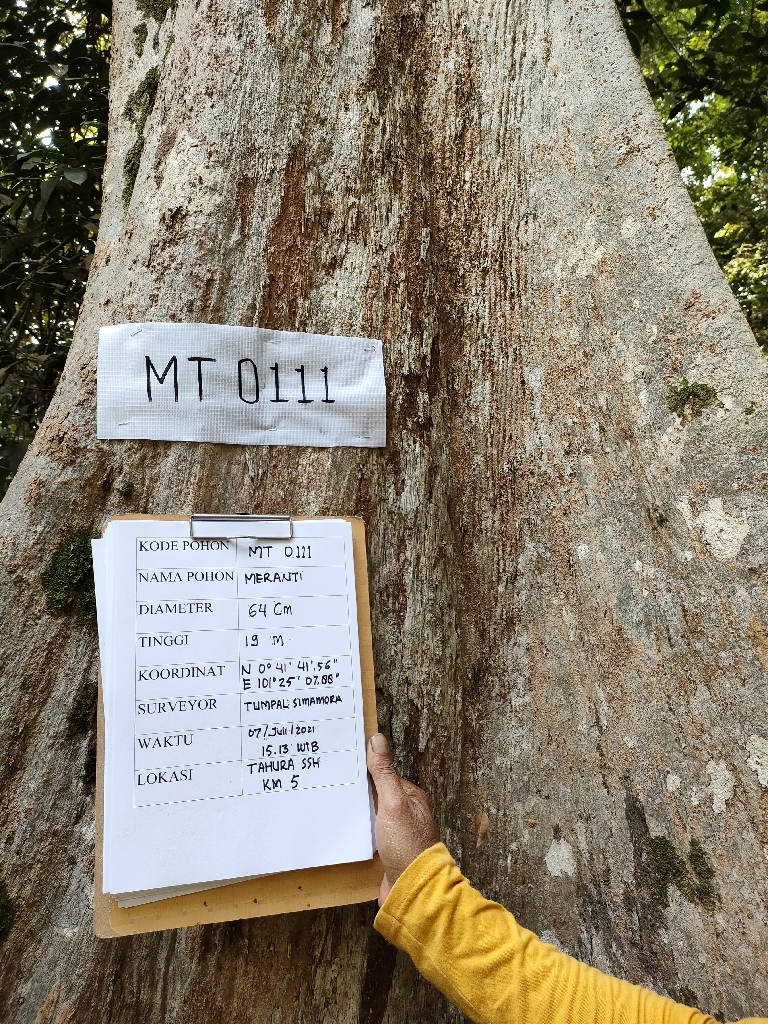 MT 0111
KODE POHON MT 0111
NAMA POHON MERANTI
DIAMETER 64 Cm
TINGGI 19 M
KOORDINAT N 0° 41' 41'.56"
E 101° 25' 07.88"
SURVEYOR TUMPAL SIMAMORA
WAKTU 07/Juli/2021
15.13 WIB
LOKASI TAHURA SSH
KM 5